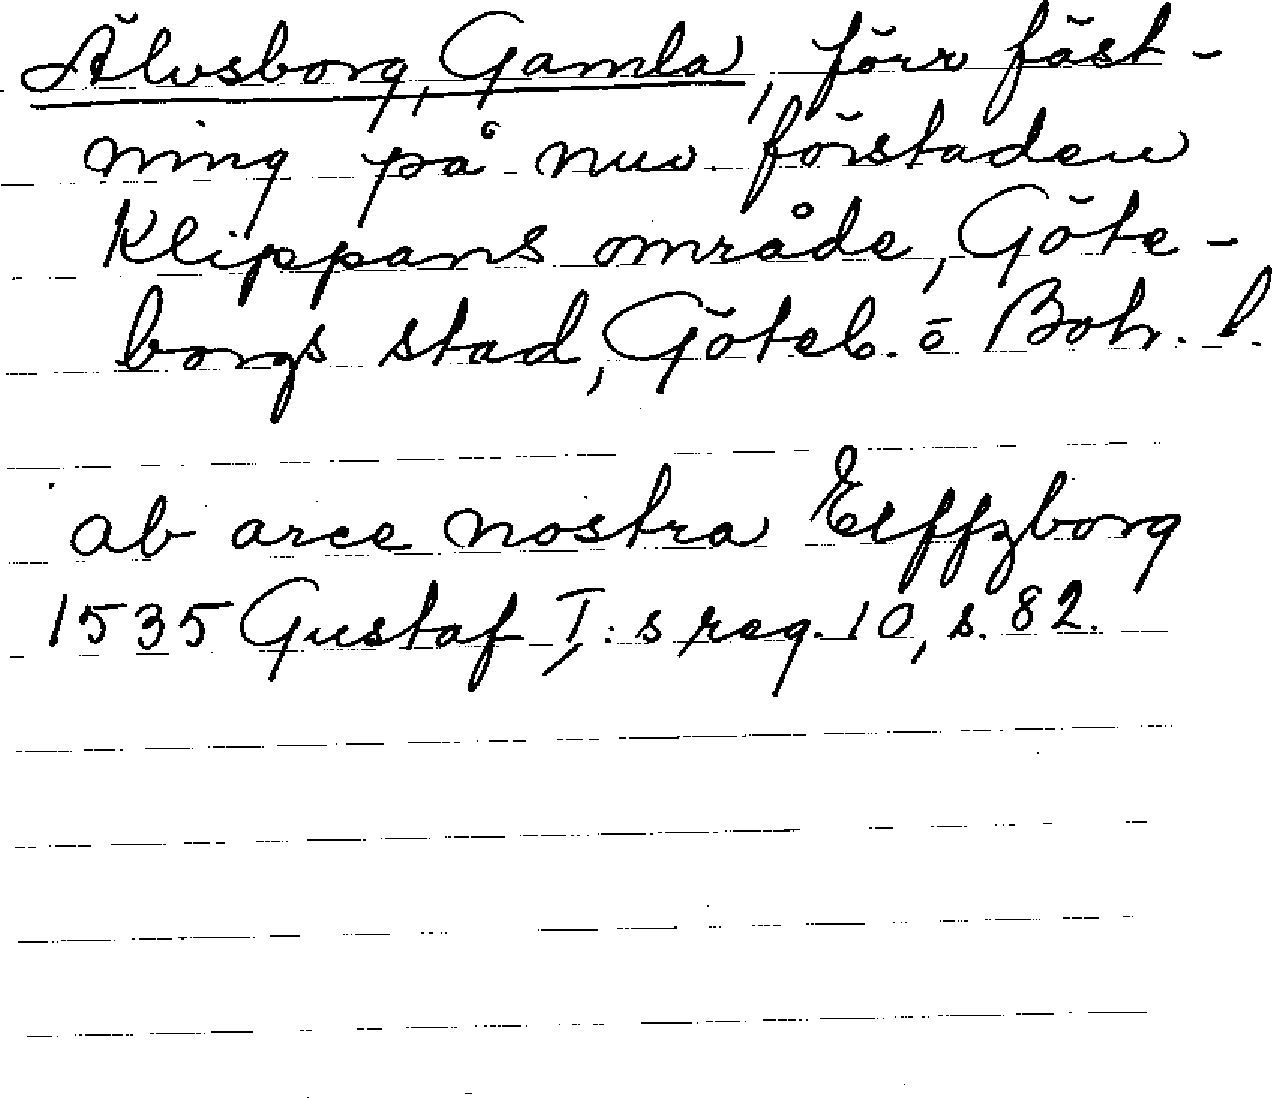 Älvsborg, Gamla, förr fäst-
ning på nuv. förstaden
Klippans område, Göte-
borgs stad, Göteb. o Boh. l.
ab arce nostra Elffzborg
1535 Gustaf I:s reg. 10, s. 82.